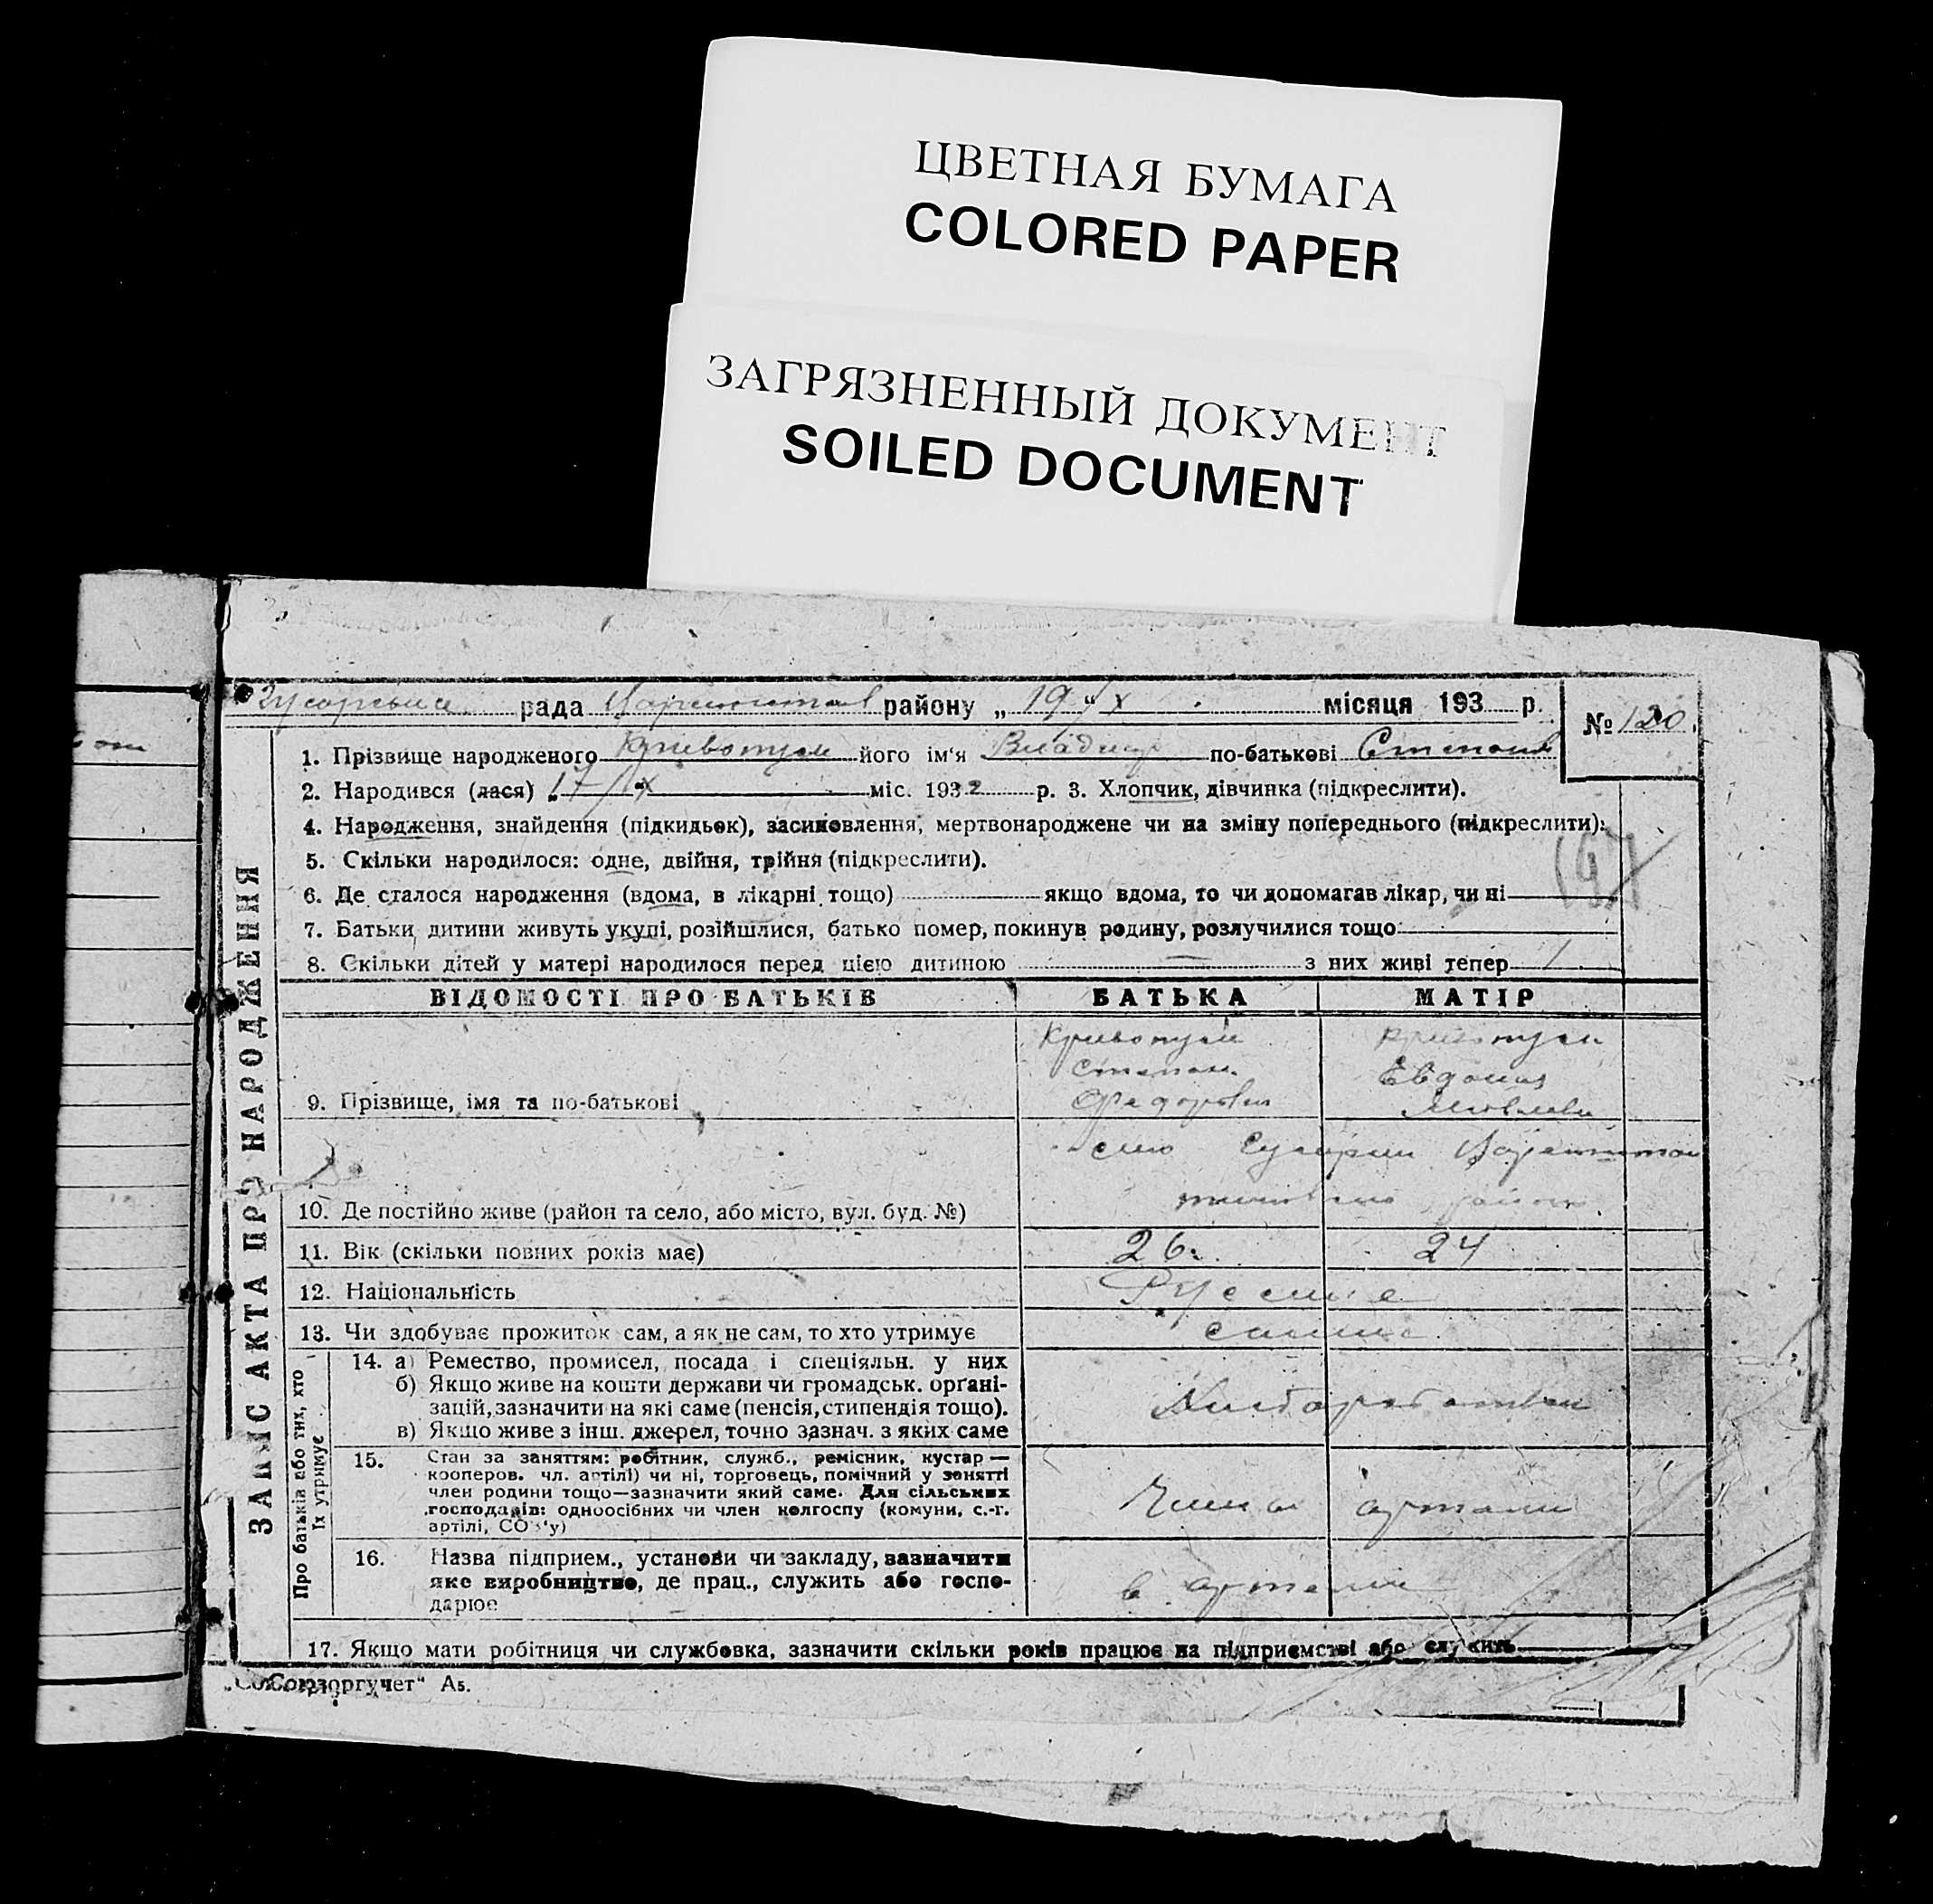 ЦВЕТНАЯ БУМАГА
COLORED PAPER
ЗАГРЯЗНЕННЫЙ ДОКУМЕНТ
SOILED DOCUMENT
рада району „ 19 “ X місяця 193 р. № 120
1. Прізвище народженого його ім'я по-батькові
2. Народився (лася) „17“ X міс. 1932 р. 3. Хлопчик, дівчинка (підкреслити).
4. Народження, знайдення (підкидьок), засиновлення, мертвонароджене чи на зміну попереднього (підкреслити):
5. Скільки народилося: одне, двійня, трійня (підкреслити).
6. Де сталося народження (вдома, в лікарні тощо) якщо вдома, то чи допомагав лікар, чи ні
7. Батьки дитини живуть укупі, розійшлися, батько помер, покинув родину, розлучилися тощо
8. Скільки дітей у матері народилося перед цією дитиною — з них живі тепер 1
ЗАПИС АКТА ПРО НАРОДЖЕННЯ
ВІДОМОСТІ ПРО БАТЬКІВ БАТЬКА МАТІР
Степан Евдокия
9. Прізвище, імя та по-батькові
10. Де постійно живе (район та село, або місто, вул. буд. №)
11. Вік (скільки повних років має) 26 24
12. Національність Русские
13. Чи здобуває прожиток сам, а як не сам, то хто утримує
Про батьків або тих, хто
їх утримує
14. а) Ремество, промисел, посада і спеціяльн. у них
б) Якщо живе на кошти держави чи громадськ. орґані-
зацій, зазначити на які саме (пенсія, стипендія тощо).
в) Якщо живе з інш. джерел, точно зазнач. з яких саме
15. Стан за заняттям: робітник, служб., ремісник, кустар—
кооперов. чл. артілі) чи ні, торговець, помічний у занятті
член родини тощо—зазначити який саме. Для сільських
господарів: одноосібних чи член колгоспу (комуни, с.-г.
артілі, СОЗ'у)
Члены артели
16. Назва підприєм., установи чи закладу, зазначити
яке виробництво, де прац., служить або госпо-
дарює
в артели
17. Якщо мати робітниця чи службовка, зазначити скільки років працює на підприємстві або служить
„Союзоргучет“ А5.